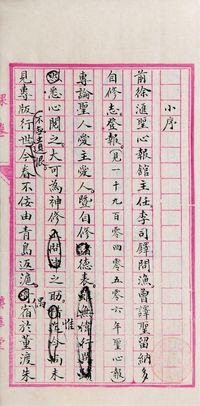 小序
前徐滙聖心報館主任李司鐸問漁曾譯聖留納多
自修志登報(見一千九百零四零五零六年聖心報
專論聖人愛主愛人暨自修諸德表
悉心閱之大可為神修之助惟尚未
見專版行世今春不佞由青島返滬偶宿於董渡朱